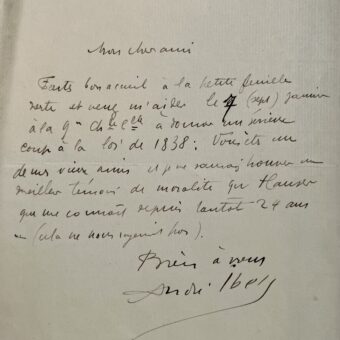 Mon cher ami
Faites bon accueil à la petite feuille
verte et venez m'aider le 7 (sept) janvier
à la 9e Ch^bre C^elle à donner un sérieux
coup à la loi de 1838. Vous êtes un
de mes vieux amis et je ne saurais trouver un
meilleur témoin de moralité que Hauser
qui me connaît depuis tantôt 24 ans
– (cela ne nous rajeunit pas).
Bien à vous
André Ibels